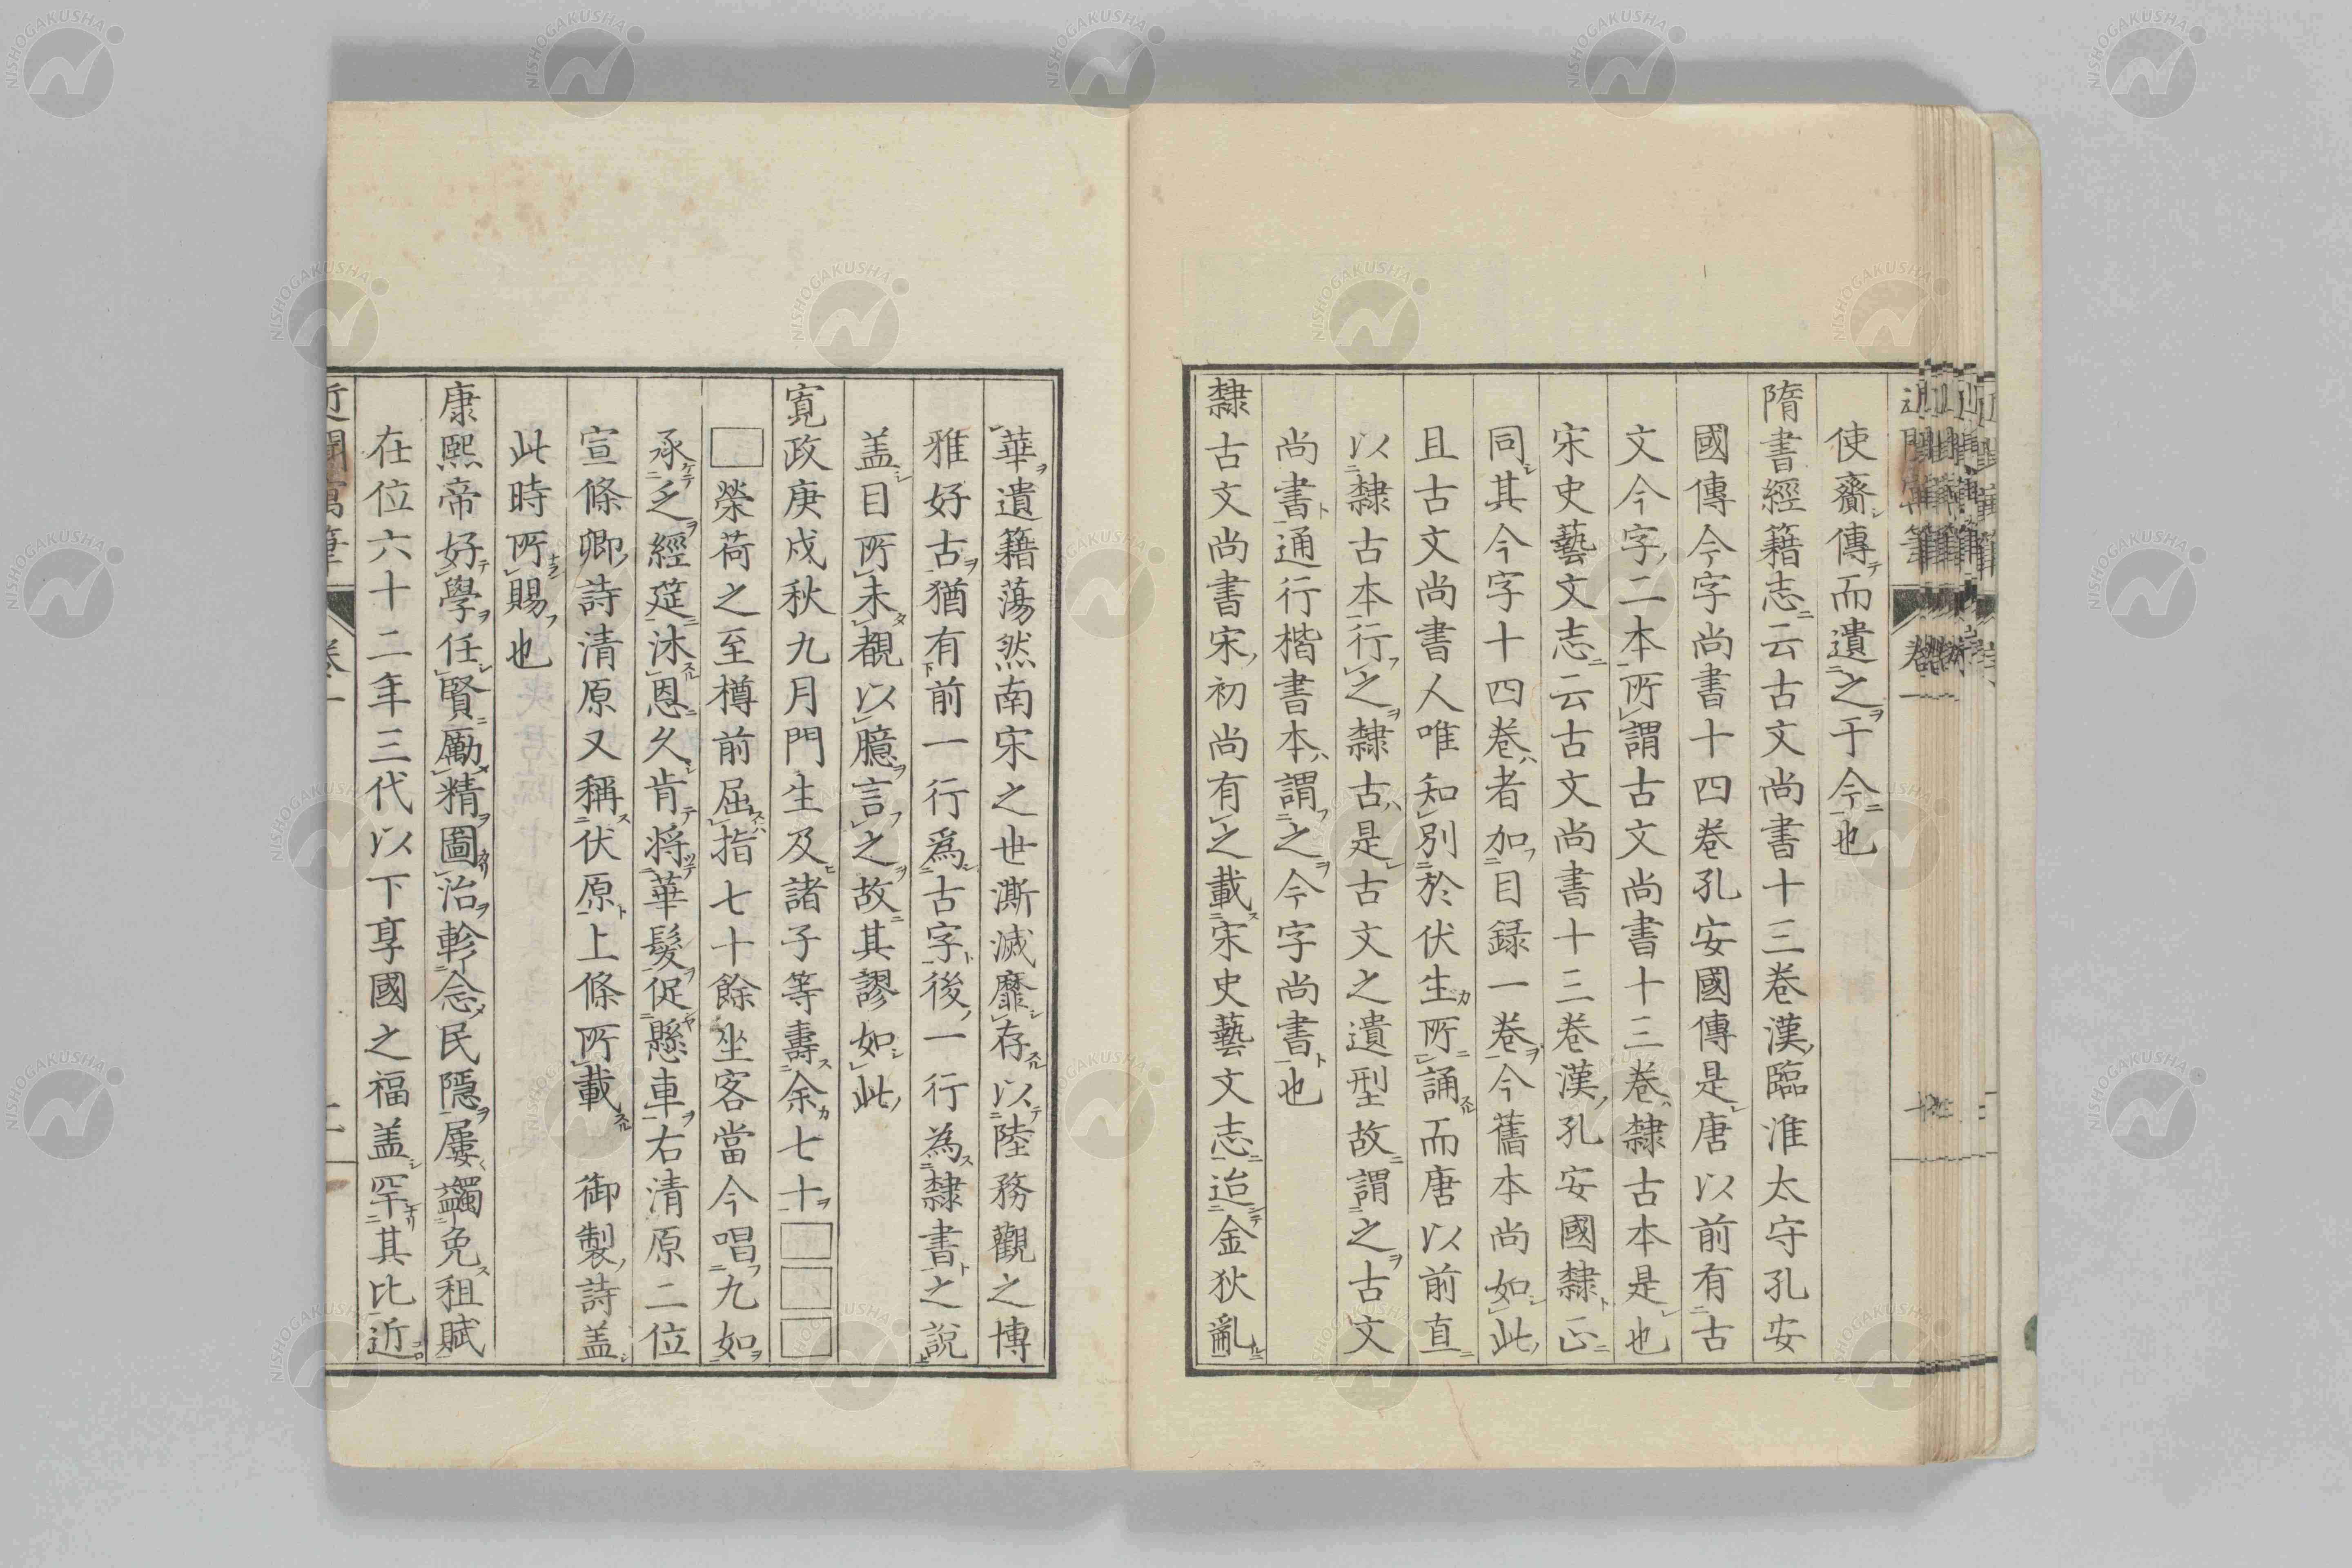 使齎傳而遺之于今也
隋書經籍志云古文尚書十三卷漢臨淮太守孔安
國傳今字尚書十四卷孔安國傳是唐以前有古
文今字二本所謂古文尚書十三卷隸古本是也
宋史藝文志云古文尚書十三卷漢孔安國隸正
同其今字十四卷者加目録一卷今舊本尚如此
且古文尚書人唯知別於伏生所誦而唐以前直
以隸古本行之隸古是古文之遺型故謂之古文
尚書通行楷書本謂之今字尚書也
隸古文尚書宋初尚有之載宋史藝文志迨金狄亂
華遺籍蕩然南宋之世澌滅靡存以陸務觀之博
雅好古猶有前一行爲古字後一行為隸書之說
盖目所未覩以臆言之故其謬如此
寛政庚戍秋九月門生及諸子等壽余七十□□□
□榮荷之至樽前屈指七十餘坐客當今唱九如
承乏經筵沐恩久肯將華髮促懸車右清原二位
宣條卿詩清原又稱伏原上條所載 御製詩盖
此時所賜也
康熙帝好學任賢勵精圖治軫念民隱屢蠲免租賦
在位六十二年三代以下享國之福盖罕其比近
近聞寓筆 卷一 二
NISHOGAKUSHA